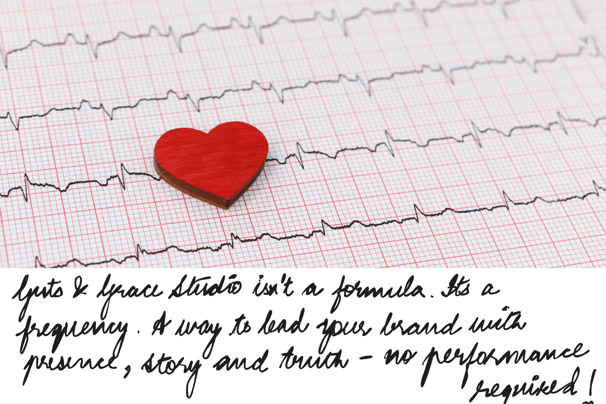 Guts & Grace Studio isn't a formula. Its a
frequency. A way to lead your brand with
presence, story and truth - no performance
required!